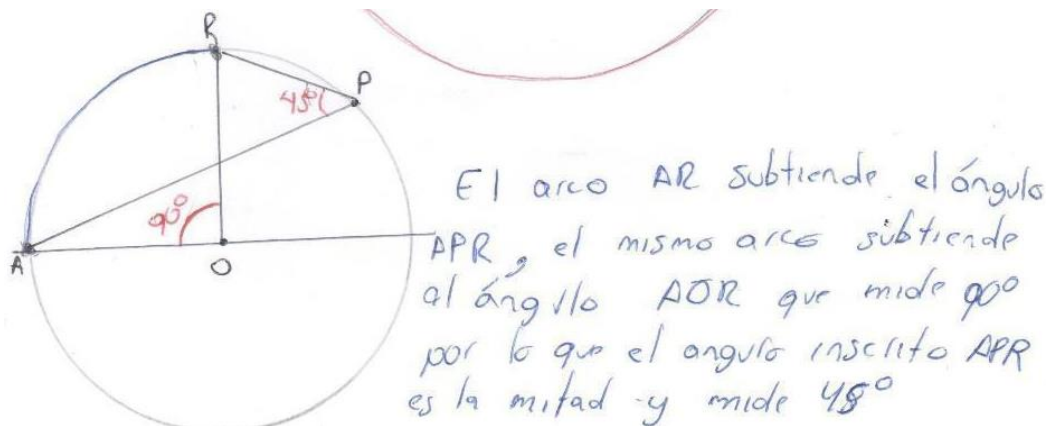 R
P
45°
90°
A
O
El arco AR subtiende el ángulo
APR, el mismo arco subtiende
al ángulo AOR que mide 90°
por lo que el angulo inscrito APR
es la mitad y mide 45°